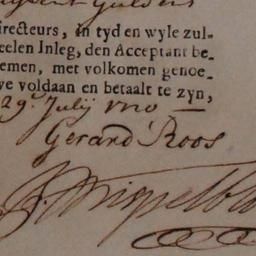 Guldens
irecteurs, in tyd en wyle zul-
eelen Inleg, den Acceptant be-
emen, met volkomen genoe-
ve voldaan en betaalt te zyn,
29. Julij 1720
Gerard Roos